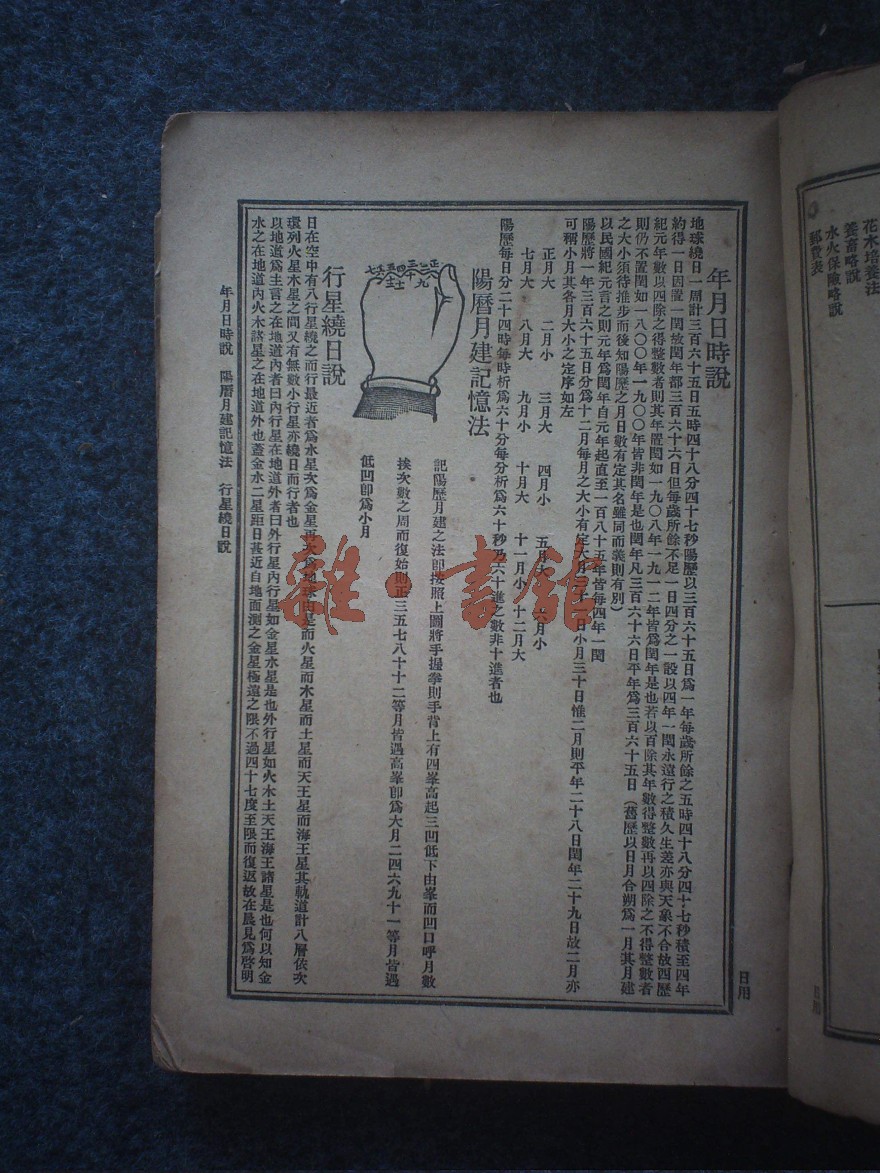 花木培養法
養畜略說
水火保險略說
郵費表
日用
日用
年月日時說
地球繞日一周計三百六十五日五時四十八分四十七秒陽歷以三百六十五日為一年每歲所餘之五時四十八分四十七秒積至四年
約得一日因置一閏故閏年都三百六十六日但每歲所餘不足一日四分之一設以四年一閏永遠行之積久生差亦與天象不合故西歷
紀元年數以四除之得整數者則其年置閏如一九〇八年一九一二年皆為閏年是也若以百除其年數得整數再以四除之不得整數者
則仍不置閏如一八〇〇年一九〇〇年皆非閏年是也閏年凡三百六十六日平年為三百六十五日(舊歷以日月合朔為一月其月建
之大小須待推步而後知陽歷之月日數有定其名雖同而義則有別)
以民國紀元言之則元年為閏年自元年起直至一百八十五年皆每四年一閏
陽歷將一年三百六十五日分為十二月每月之大小有定大月三十一日小月三十日惟二月則平年二十八日閏年二十九日故二月亦
可稱小月其各月大小之定序如左
正月大 二月小 三月大 四月小 五月大 六月小
七月大 八月大 九月小 十月大 十一月小 十二月大
陽歷每日分二十四時每時析為六十分每分析為六十秒乃六十進之數非十進者也
陽曆月建記憶法
記陽歷月建之法即按照上圖將手握拳則手背上有四峯高起三凹低下由峯而凹口呼月數
挨次數之周而復始則正三五七八十十二等月皆遇高峯即為大月二四六九十一等月皆遇
低凹即為小月
行星繞日說
日在空中有八行星繞之而行最近者為水星次為金星再次為地球由是而火星而木星而土星而天王星而海王星其軌道計八層依次
環列火星木星之間又有無數小行星亦繞日而行者也
以地道為主言之在地道內者曰內行星在地道外者曰外行星內行星如金星水星是也外行星如火木土天王海王諸星是也何以知金
水之在地道內火木諸星之在地道外也蓋金水二星距日甚近自地面測之金星極遠之限不過四十七度至限而復返故在晨見為啓明
年月日時說 陽曆月建記憶法 行星繞日說
雜·書館